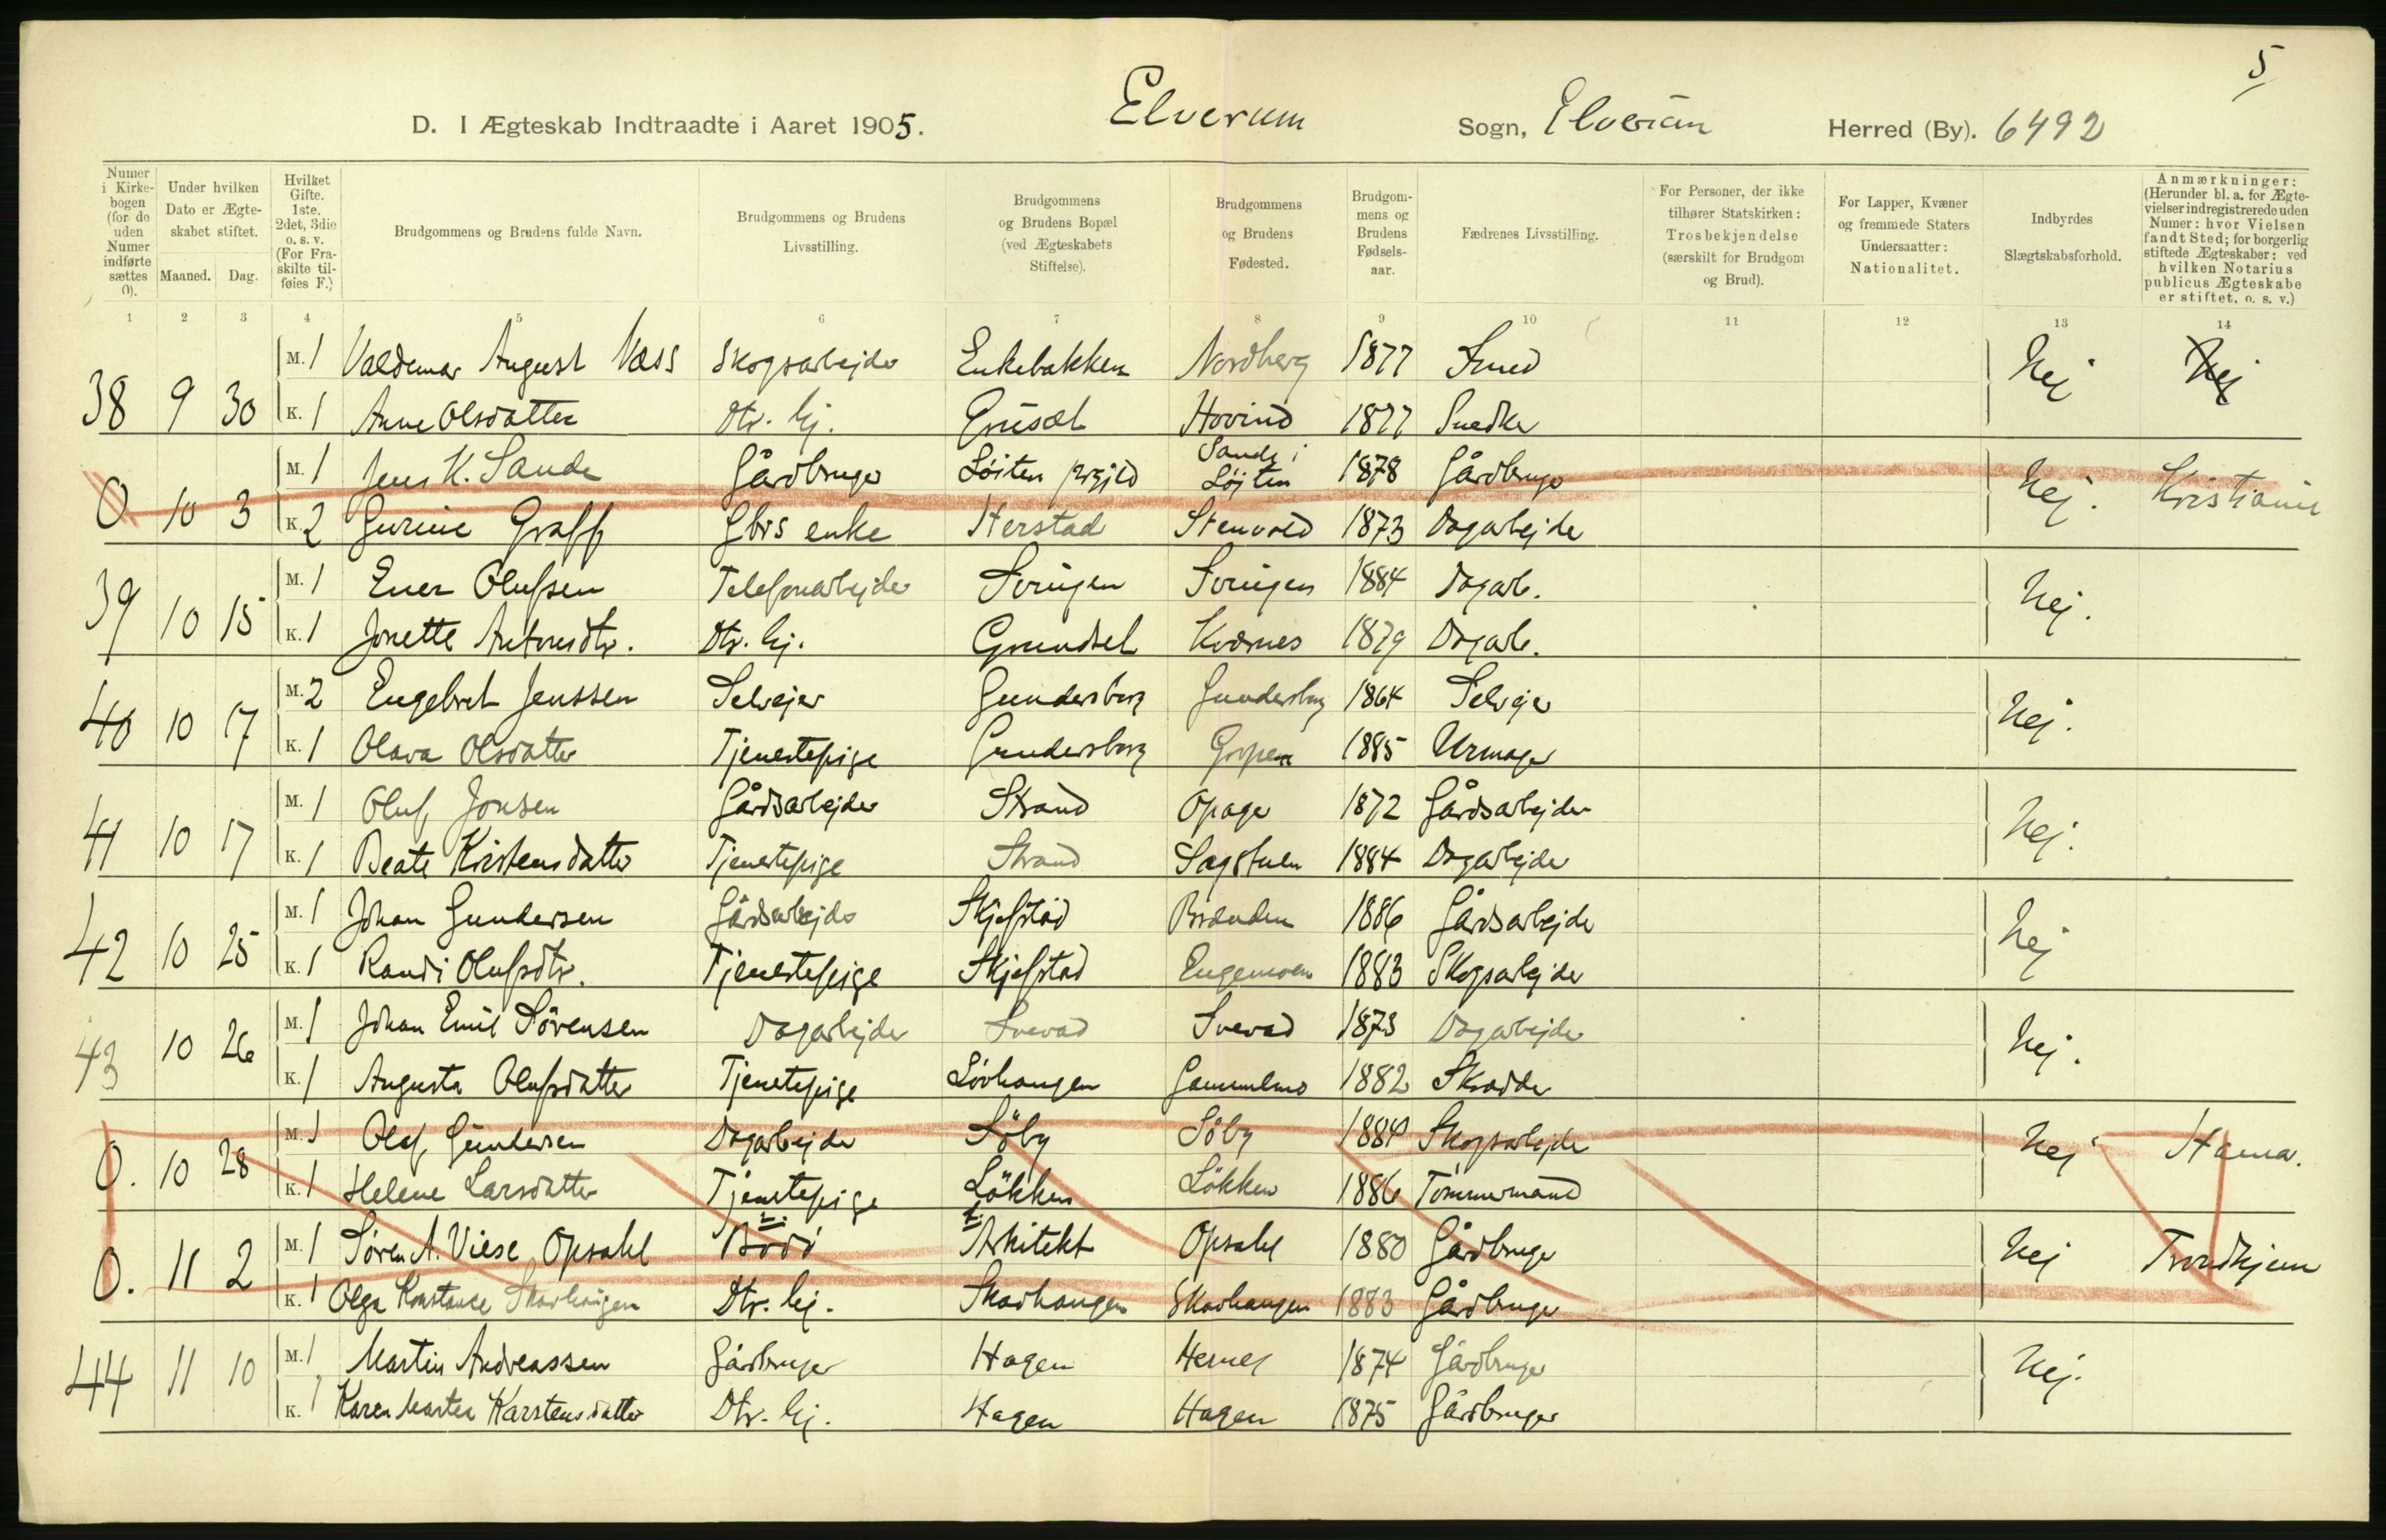 5
D. I Ægteskab Indtraadte i Aaret 1905. Elverum Sogn, Elverum Herred (By). 6492
Numer i Kirkebogen (for de uden Numer indførte sættes 0).
Under hvilken Dato er Ægteskabet stiftet.
Maaned. Dag.
Hvilket Gifte. 1ste. 2det, 3die o. s. v. (For Fraskilte tilføies F.)
Brudgommens og Brudens fulde Navn.
Brudgommens og Brudens Livsstilling.
Brudgommens og Brudens Bopæl (ved Ægteskabets Stiftelse).
Brudgommens og Brudens Fødested.
Brudgommens og Brudens Fødselsaar.
Fædrenes Livsstilling.
For Personer, der ikke tilhører Statskirken: Trosbekjendelse (særskilt for Brudgom og Brud).
For Lapper, Kvæner og fremmede Staters Undersaatter: Nationalitet.
Indbyrdes Slægtskabsforhold.
Anmærkninger: (Herunder bl. a. for Ægtevielser indregistrerede uden Numer: hvor Vielsen fandt Sted; for borgerlig stiftede Ægteskaber: ved hvilken Notarius publicus Ægteskabe er stiftet, o. s. v.)
1 2 3 4 5 6 7 8 9 10 11 12 13 14
38 9 30 M. 1 Valdemar August Næss Skogsarbejder Enkebakken Nordberg 1877 Smed Nej Nej
K. 1 Anne Olsdatter Dtr. hj. Hovind 1877 Snedker
0 10 3 M. 1 Jens K. Sande Gårdbruger Løiten prgjld Sande i Löjten 1878 Gårdbruger Nej. Kristiania
K. 2 Gurine Graff Gbrs enke Herstad Stenvold 1873 Dagarbejder
39 10 15 M. 1 Ener Olufsen Telefonarbejder 1884 Dagarb. Nej.
K. 1 Jonette Antonsdtr. Dtr. hj. Grundset Kværnes 1879 Dagarb.
40 10 17 M. 2 Engebret Jenssen Selvejer Gundersberg Gundersberg 1864 Selvejer Nej.
K. 1 Olava Olsdatter Tjenestepige Gundersberg 1885 Urmager
41 10 17 M. 1 Oluf Jonsen Gårdsarbejder Strand Opage 1872 Gårdsarbejder Nej.
K. 1 Beate Kristensdatter Tjenestepige Strand Sagstuen 1884 Dagarbejder
42 10 25 M. 1 Johan Gundersen Gårdsarbejder Skjefstad Brænden 1886 Gårdsarbejder Nej
K. 1 Randi Olufsdtr. Tjenestepige Skjefstad Engemoen 1883 Skogsarbejder
43 10 26 M. 1 Johan Emil Sörensen Dagarbejder Svevad Svevad 1873 Dagarbejder Nej.
K. 1 Augusta Olufsdatter Tjenestepige Lövhaugen Gammelmo 1882 Skrædder
0. 10 28 M. 1 Olaf Gundersen Dagarbejder Söby Söby 1884 Skogsarbejder Nej Hamar.
K. 1 Helene Larsdatter Tjenestepige Lökken Lökken 1886 Tömmermand
0. 11 2 M. 1 Søren A. Viese Opsahl Bodö Arkitekt Opsahl 1880 Gårdbruger Nej Trondhjem
K. 1 Olga Konstance Skavhaugen Dtr. hj. Skavhaugen Skavhaugen 1883 Gårdbruger
44 11 10 M. 1 Martin Andreassen Gårdbruger Hagen Hernes 1874 Gårdbruger Nej.
K. 1 Karen Martea Karstensdatter Dtr. hj. Hagen Hagen 1875 Gårdbruger